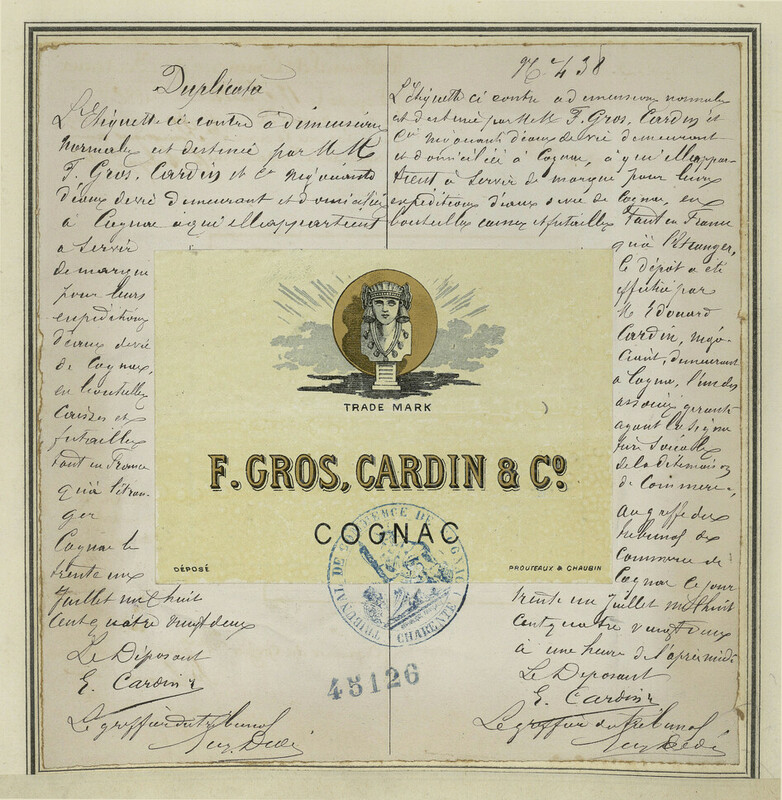 Duplicata
L'Etiquette ci contre a dimensions
normales est destinée par M M
F. Gros, Cardin et Cie négociants
d'eaux de vie demeurant et domiciliés
à Cognac à qui elle appartient
a servir
de marque
pour leurs
expeditions
d'eaux de vie
de Cognac,
en bouteilles
caisses et
futailles
tant en France
qu'à l'étran-
ger
Cognac le
trente un
Juillet mil huit
cent quatre vingt deux
Le Déposant
E. Cardin
Le greffier du tribunal
N° 438
L'Etiquette ci contre a dimensions normales
est destinée par M M F. Gros, Cardin et
Cie négociants d'eaux de vie demeurant
et domiciliés à Cognac, à qui elle appar-
tient à servir de marque pour leurs
expéditions d'eaux de vie de Cognac, en
bouteilles caisses et futailles tant en France
qu'à l'étranger,
le dépôt a été
effectué par
M Edouard
Cardin, négo-
ciant, demeurant
à Cognac, l'un des
associés gérants
ayant la signa
ture sociale
de la dite maison
de Commerce,
au greffe du
tribunal de
Commerce de
Cognac le jour
trente un Juillet mil huit
cent quatre vingt deux
à une heure de l'après midi
Le Déposant
E. Cardin
Le greffier du tribunal
TRADE MARK
F. GROS, CARDIN & Co.
COGNAC
DÉPOSÉ
PROUTEAUX & CHAUBIN
TRIBUNAL DE COMMERCE DE COGNAC
CHARENTE
45126